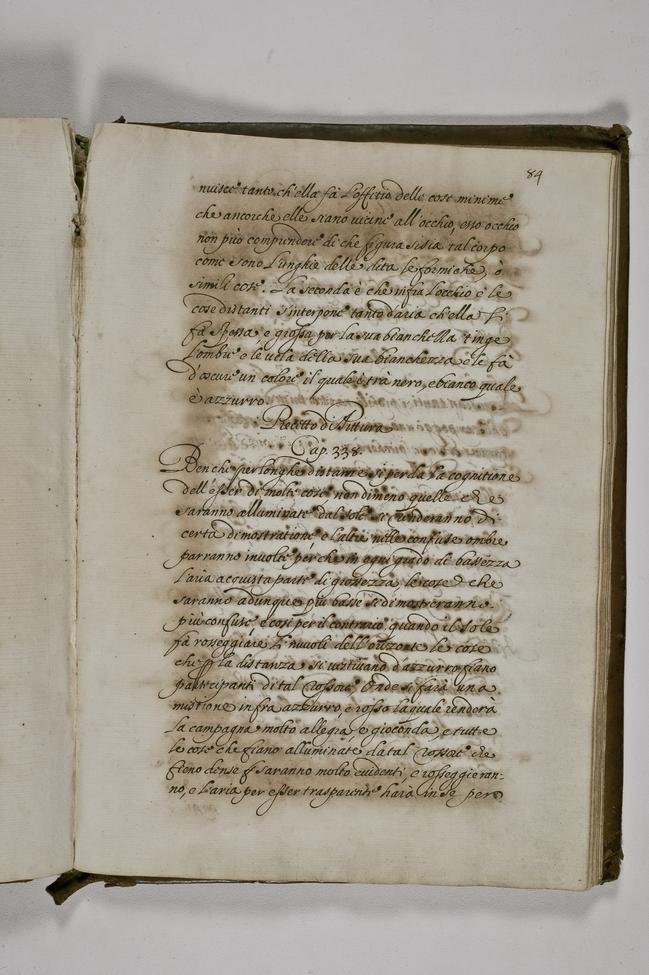 84
nuisce tanto, ch'ella fà l'offitio delle cose minime
che ancorche elle siano vicine all'occhio, esso occhio
non può comprendere di che figura si sia tal corpo
come sono l'unghie delle dita le formiche, ò
simili cose. La seconda è che infra l'occhio e le
cose distanti s'interpone tanto d'aria ch'ella si
fà spessa, e grossa, per la sua bianchezza tinge
l'ombre e le vela della sua bianchezza, e le fà
d'oscure un colore il quale è trà nero, e bianco quale
è azzurro.
Precetto di Pittura
Cap. 338.
Benche per longhe distantie si perda la cognitione
dell'esser di molte cose nondimeno quelle che
saranno alluminate dal sole si renderanno di
certa dimostratione e l'altre nelle confuse ombre
parranno involte perche in ogni grado di bassezza
l'aria acquista parte di grossezza, le cose che
saranno adunque più basse si dimostreranno
più confuse e così per il contrario quando il sole
fà rosseggiare li nuvoli dell'orizonte le cose
che per la distanza si vestivano d'azzurro fiano
partecipanti di tal rossore. Onde si farà una
mistione infra azzurro, e rosso la quale renderà
la campagna molto allegra, e gioconda, e tutte
le cose che fiano alluminate da tal rossore che
fieno dense saranno molto evidenti, e rosseggieran-
no, e l'aria per esser trasparente harà in se per